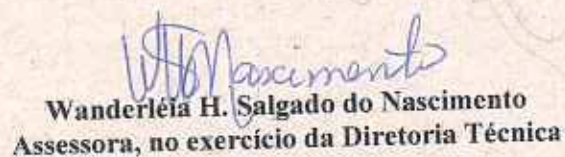 Nascimento
Wanderléia H. Salgado do Nascimento
Assessora, no exercício da Diretoria Técnica